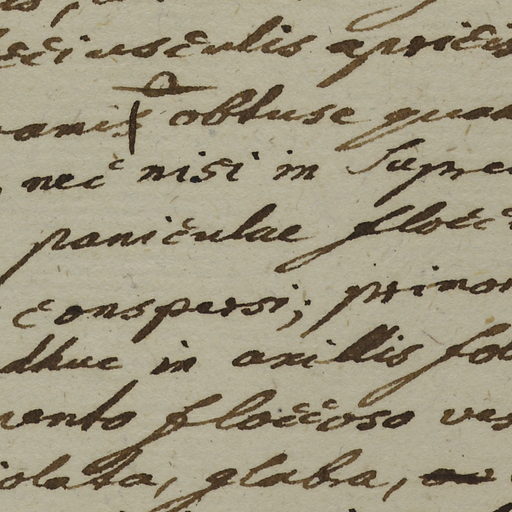 usculis apricis
ramis obtuse quad
, nec nisi in supre
paniculae flocc
conspersi; primor
dhuc in axillis fol
mento floccoso ves
iolata, glabra,